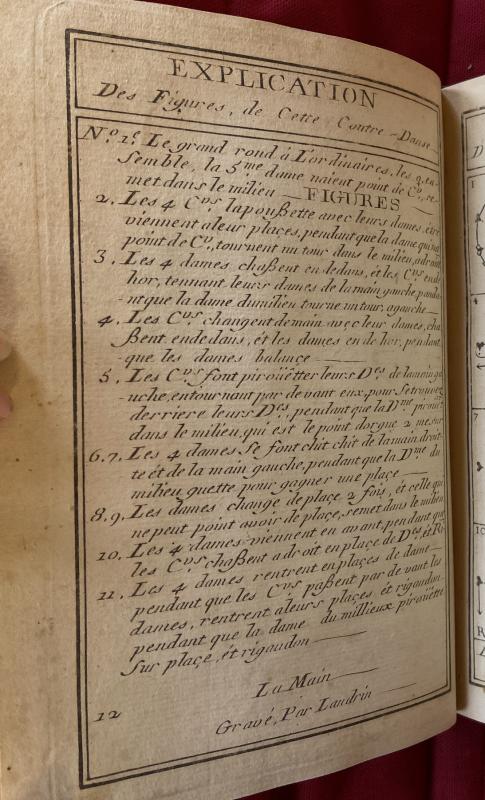 EXPLICATION
Des Figures, de Cette Contre-Danse
N.º 1.ᵉ Le grand rond à L'ordinaires, les 9, en-
semble, la 5ᵐᵉ dame naient point de Cʳ, se
met dans le milieu — FIGURES —
2. Les 4 Cʳˢ la poußette avec leurs dames, et re
viennent a leur places, pendant que la dame qui na
point de Cʳ, tournent un tour dans le milieu, a droit
3. Les 4 dames chaßent en dedans, et les Cʳˢ en de
hor, tennant leurs dames de la main gauche, penda-
-nt que la dame du milieu tourne un tour, agauche
4. Les Cʳˢ changent demain avec leur dames, cha
ßent en dedans, et les dames en de hor, pendant,
-que les dames balance
5. Les Cʳˢ font piroüetter leurs Dᵉˢ de la main ga
uche, en tournant par devant eux, pour se trouvez
derriere leurs Dᵉˢ, pendant que la Dᵐᵉ piroüe
dans le milieu, qui est le point dorgue 2 me sur
6.7. Les 4 dames se font chit chit de la main droit-
te et de la main gauche, pendant que la Dᵐᵉ du
milieu guette pour gagner une place
8.9. Les dames change de place 2 fois, et celle qui
ne peut point avoir de place, se met dans le milieu
10. Les 4 dames viennent en avant, pendant que
les Cʳˢ chaßent a droit en place de Dᵉˢ, et Ri
11. Les 4 dames rentrent en places de dame
pendant que les Cʳˢ paßent par de vant les
dames, rentrent a leurs places et rigaudon
pendant que la dame du millieux piroüette
sur place, et rigaudon
La Main
12
Gravé, Par Laudrin
1
4
7
10